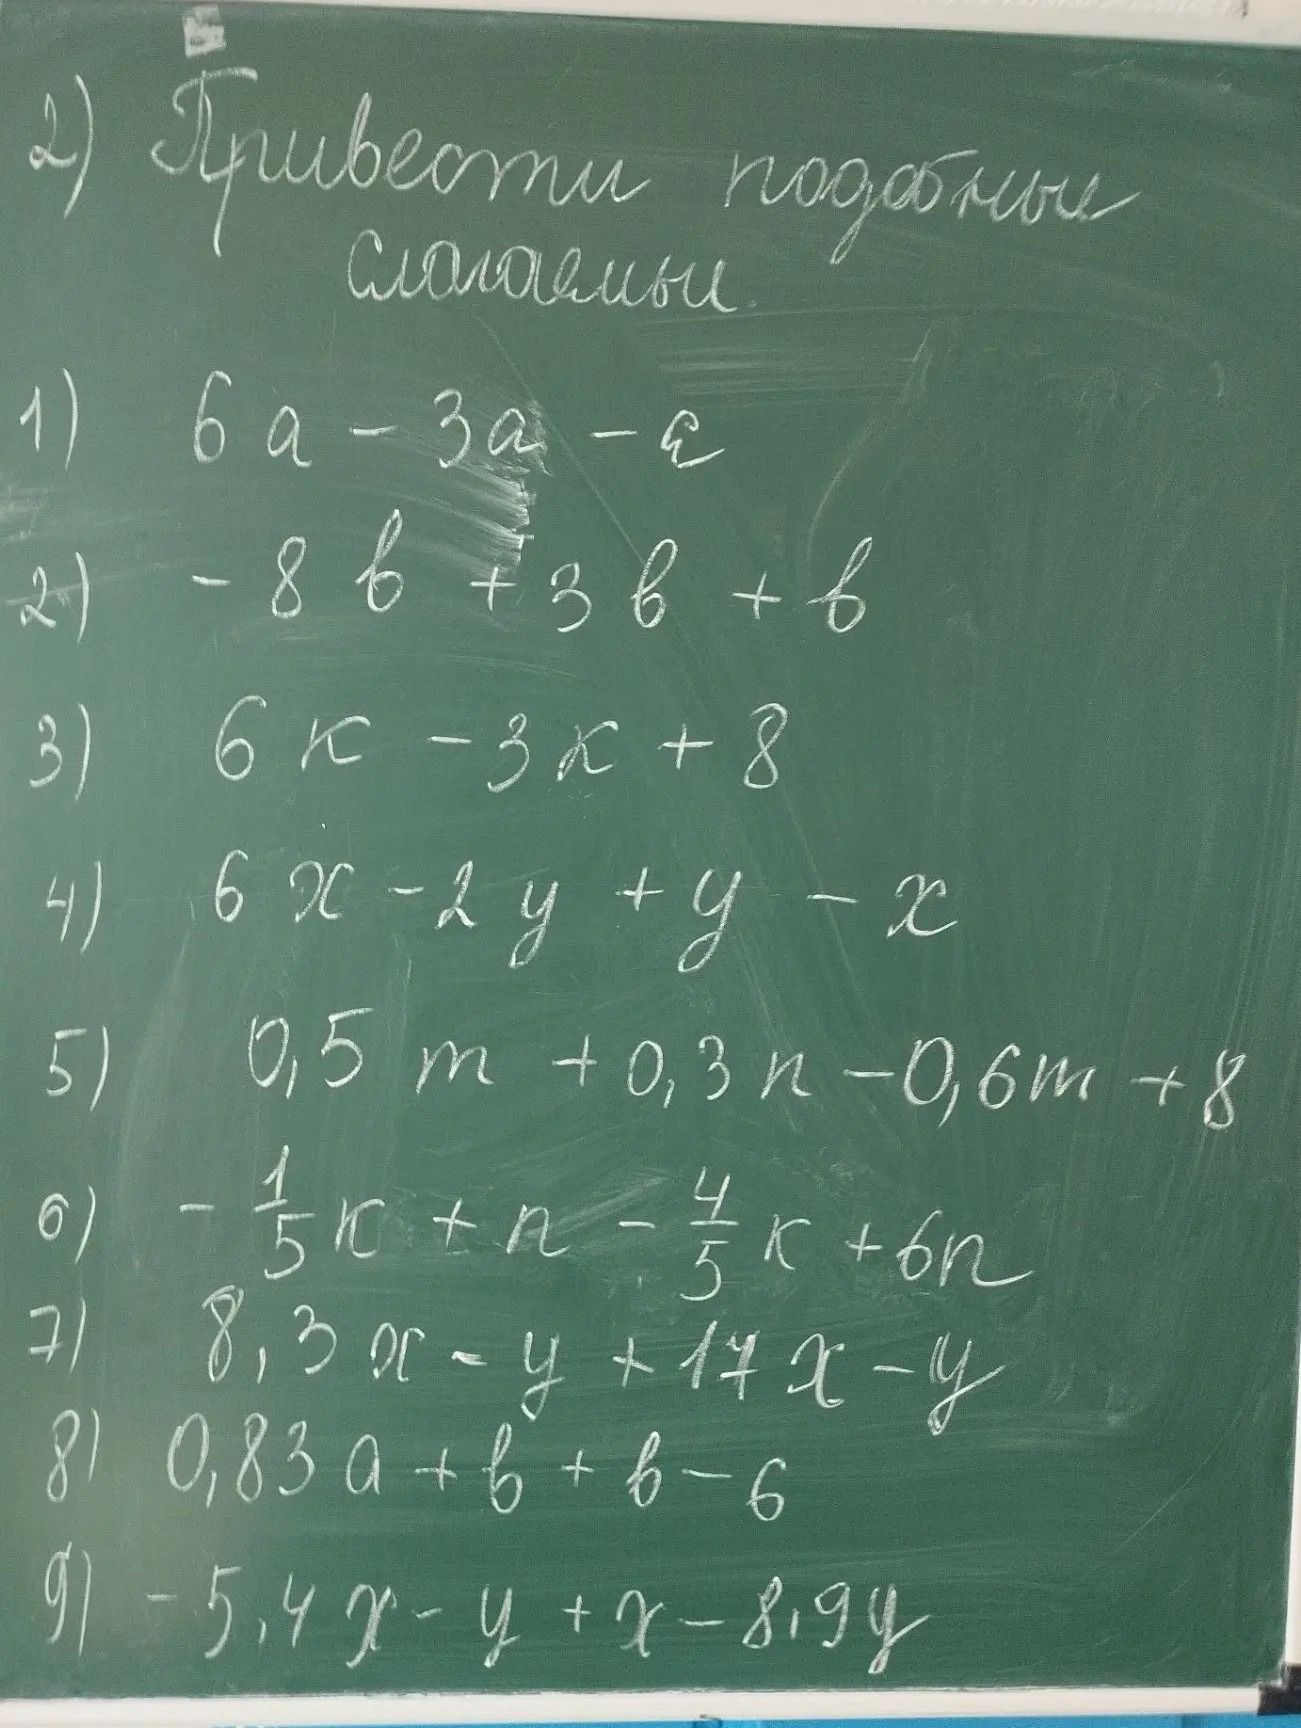 2) Привести подобные
слагаемые.
1) 6a - 3a - a
2) - 8b + 3b + b
3) 6к - 3к + 8
4) 6x - 2y + y - x
5) 0,5m + 0,3n - 0,6m + 8
6) - 1/5к + n - 4/5к + 6n
7) 8,3x - y + 17x - y
8) 0,83a + b + b - 6
9) - 5,4x - y + x - 8,9y